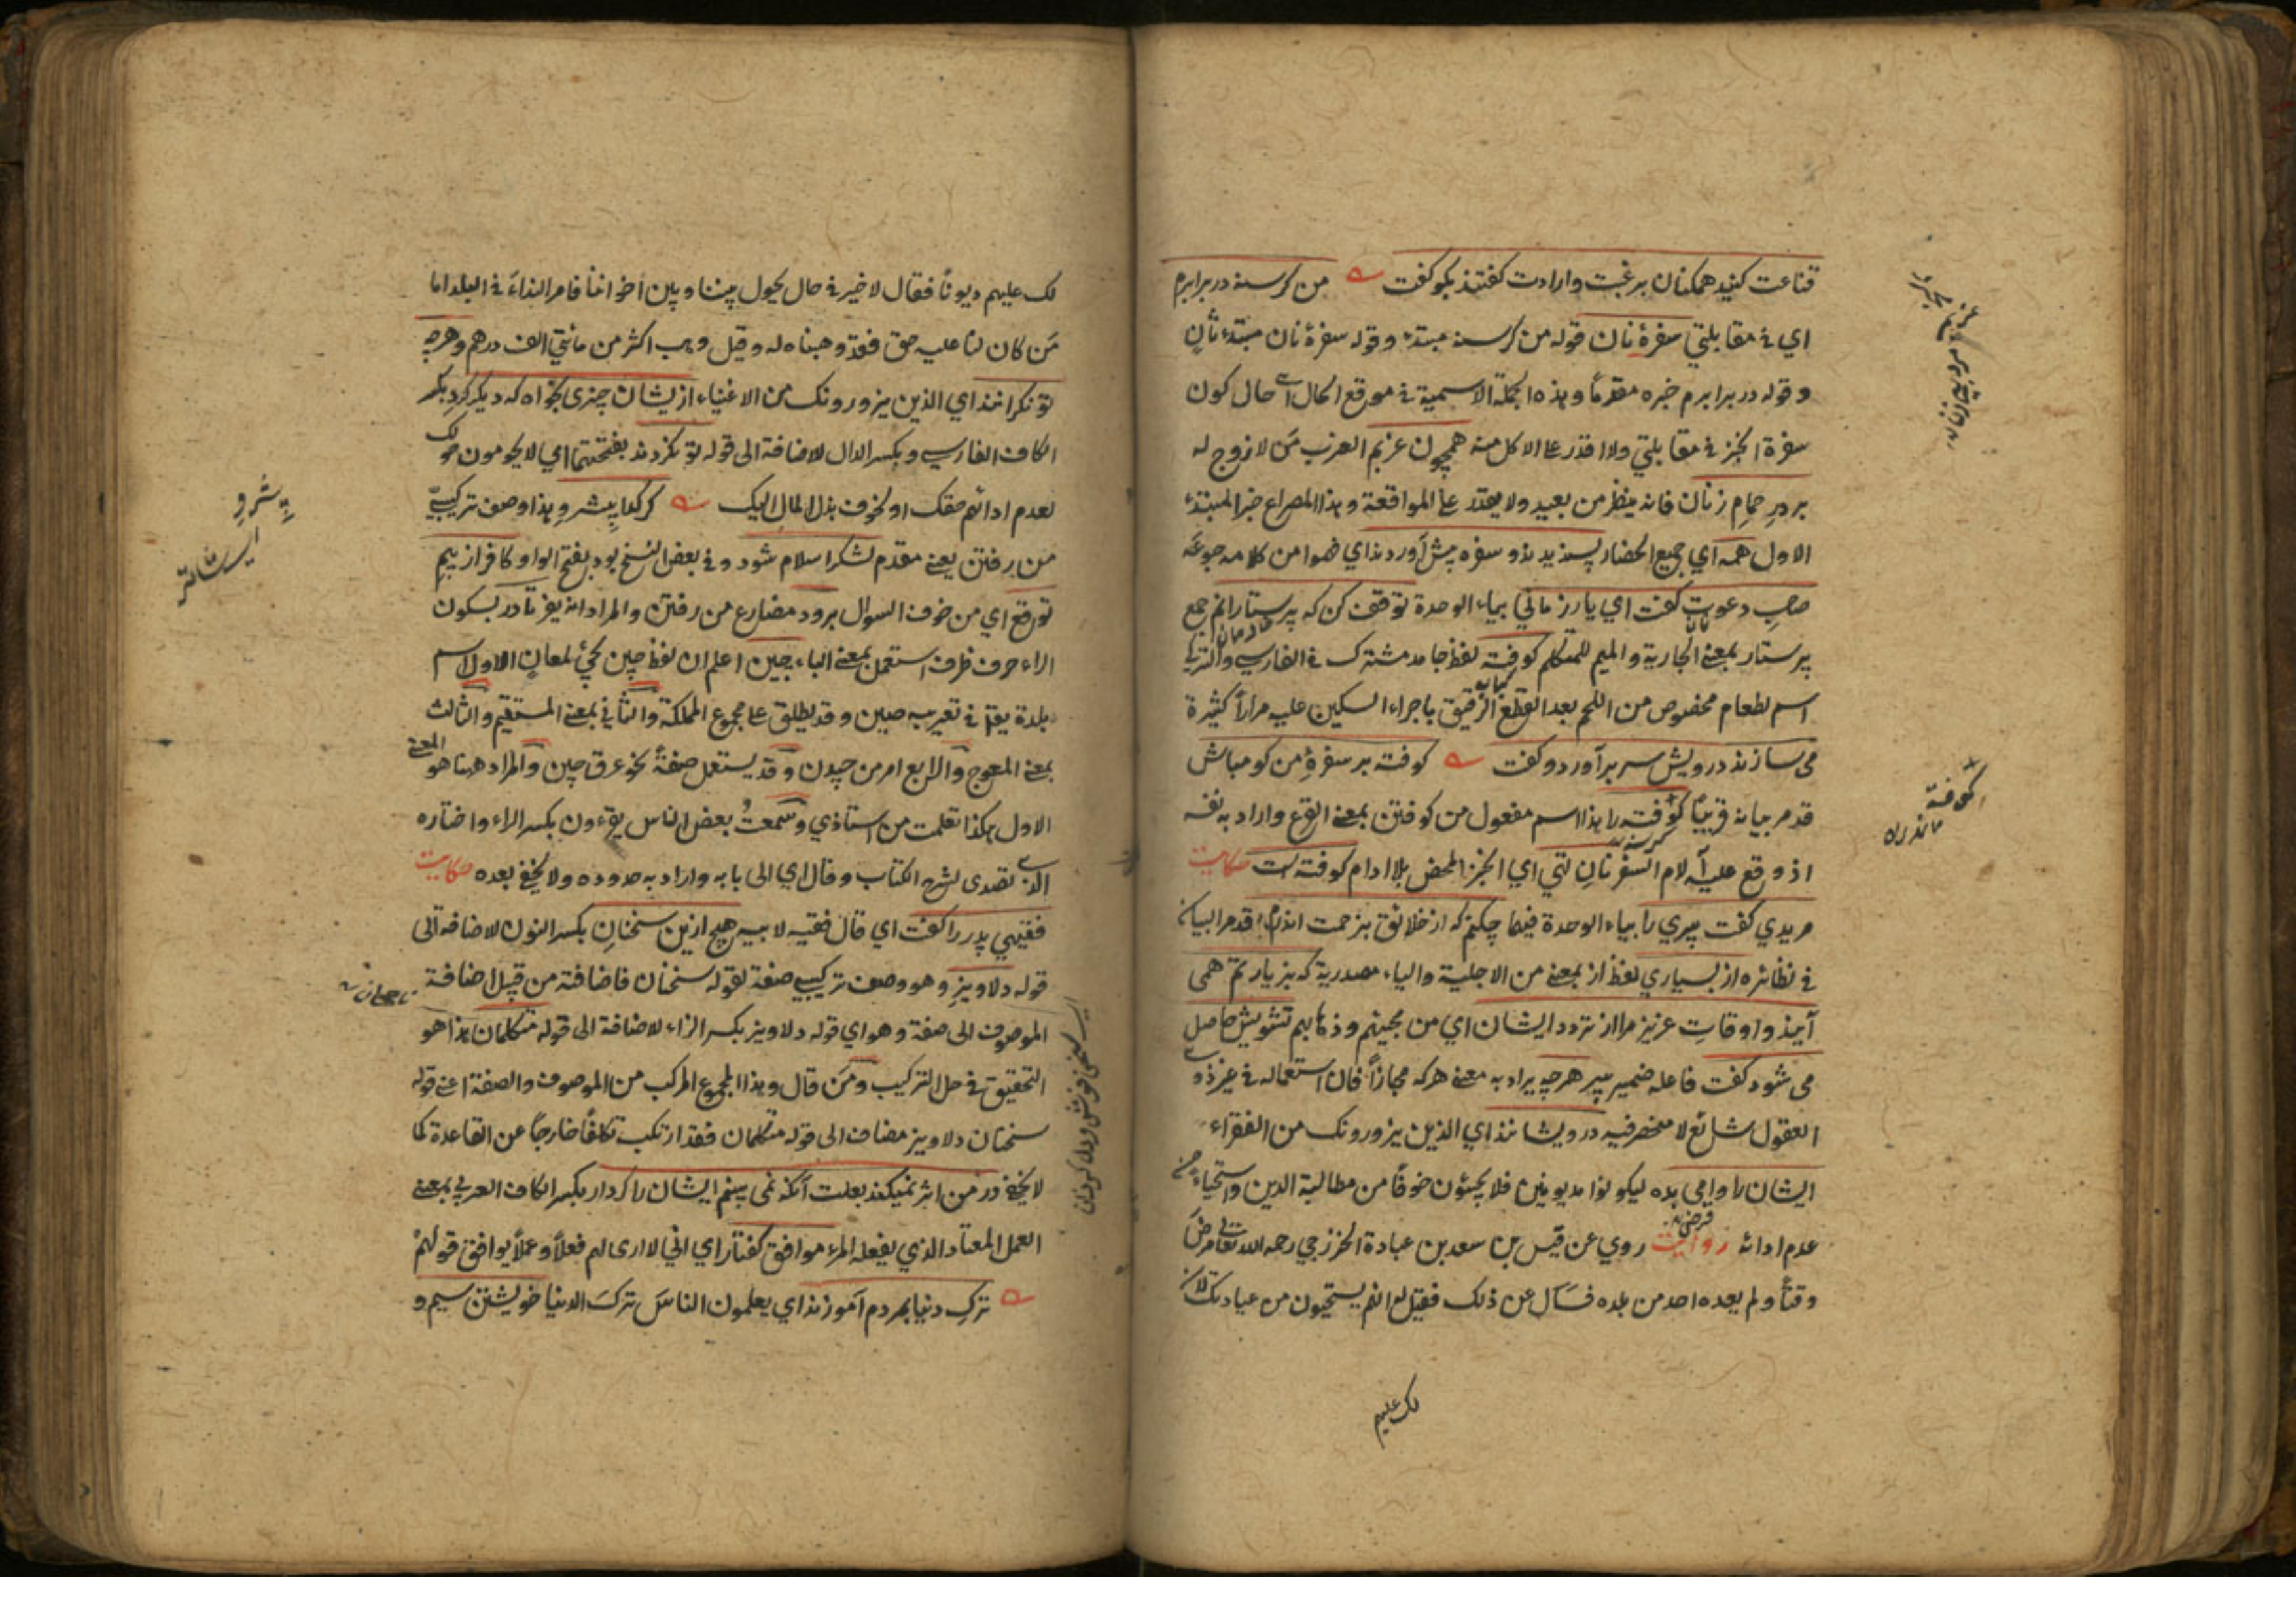 قناعت کنید همکنان برغبت وارادت کفتند بکو کفت من کرسنه در برابرم
اي في مقابلتي سفرۀ نان قوله من کرسنه مبتدء وقوله سفرۀ نان مبتدء ثان
وقوله در برابرم خبره مقدماً وهذه الجملة الاسمية في موقع الحال اي حال كون
سفرة الخبز في مقابلتي ولا اقدر على الاكل منه همچون عزبم العزب من لا زوج له
بر در حمام زنان فانه ينظر من بعيد ولا يقدر على المواقعة وهذا المصراع خبر المبتدء
الاول همه اي جميع الحضار پسندیدند وسفره پیش آوردند اي فهموا من كلامه جوعه
صاحب دعوت کفت اي یار زماني بياء الوحدة توقف کن که پرستارانم جمع
پرستار بمعنى الجارية والميم للمتكلم کوفته لفظ جامد مشترك في الفارسي والتركي
اسم لطعام مخصوص من اللحم بعد القطع الرقيق باجراء السكين عليه مراراً كثيرة
می سازند درویش سر برآورد وکفت کوفته بر سفرۀ من کو مباش
قد مر بيانه قريباً کوفته را هذا اسم مفعول من کوفتن بمعنى القرع واراد به نفسه
اذ وقع عليه آلام السفر نان تهي اي الخبز المحض بلا ادام کوفته است حکایت
مریدي کفت پیري را بياء الوحدة فيهما چکنم که از خلائق بزحمت اندرم قد مر البيان
في نظائره از بسیاري لفظ از بمعنى من الاجلية والياء مصدرية که بزیارتم همی
آیند واوقات عزیز مرا از تردد ایشان اي من مجيئهم وذهابهم تشویش حاصل
می شود کفت فاعله ضمير پير هرچه يراد به معنى هرکه مجازاً فان استعماله في غير ذوي
العقول شائع لا منحصر فيه درویشانند اي الذين يزورونك من الفقراء
ایشان را وامی بده ليكونوا مديونين فلا يجيئون خوفاً من مطالبة الدين واستحياء من
عدم ادائه روایت روي عن قيس بن سعد بن عبادة الخزرجي رحمه الله تعالى مرض
وقتاً ولم يعده احد من بلده فسأل عن ذلك فقيل له انهم يستحيون من عيادتك لان
لك عليهم
کوفته
لك عليهم ديوناً فقال لا خير في حال يحول بيننا وبين اخواننا فامر النداء في البلد اما
من كان لنا عليه حق فقد وهبناه له وقيل وهب اكثر من مائتي الف درهم وهرچه
توانکرانند اي الذين يزورونك من الاغنياء از ایشان چیزی بخواه که دیکر کرد بکسر
الكاف الفارسي وبكسر الدال للاضافة الى قوله تو نکردند بفتحتها اي لا يحومون حولك
لعدم ادائهم حقك او لخوف بذل المال اليك کر کدا پیشرو هذا وصف تركيبي
من رفتن يعني مقدم لشکر اسلام شود وفي بعض النسخ بود بفتح الواو کافر از بیم
توقع اي من خوف السؤال برود مضارع من رفتن والمراد انه يفر تا در بسكون
الراء حرف ظرف استعمل بمعنى الباء چین اعلم ان لفظ چین يجيء لمعان الاول اسم
بلدة يقع في تعريبه صين وقد يطلق على مجموع المملكة والثاني بمعنى المستقيم والثالث
بمعنى المعوج والرابع امر من چیدن وقد يستعمل صفة نحو عرق چین والمراد ههنا هو المعنى
الاول هكذا تعلمت من استاذي وسمعت بعض الناس يقرءون بكسر الراء واختاره
الذي تصدى لشرح الكتاب وقال اي الى بابه واراد به حدوده ولا يخفى بعده حکایت
فقیهي پدر را کفت اي قال فقيه لابيه هیچ ازین سخنان بكسر النون للاضافة الى
قوله دلاویز وهو وصف تركيبي صفة لقوله سخنان فاضافته من قبيل اضافة
الموصوف الى صفة وهو اي قوله دلاویز بكسر الزاء للاضافة الى قوله متکلمان هذا هو
التحقيق في حل التركيب ومن قال وهذا المجموع المركب من الموصوف والصفة اعني قوله
سخنان دلاویز مضاف الى قوله متکلمان فقد ارتكب تكلفاً خارجاً عن القاعدة كما
لا يخفى در من اثر نمیکند بعلت آنکه نمی بینم ایشان را کردار بكسر الكاف العربي بمعنى
العمل المعتاد الذي يفعله المرء موافق کفتار اي اني لا ارى لهم فعلاً وعملاً يوافق قولهم
ترک دنیا بمردم آموزند اي يعلمون الناس ترك الدنيا خویشتن سیم و
پیشرو